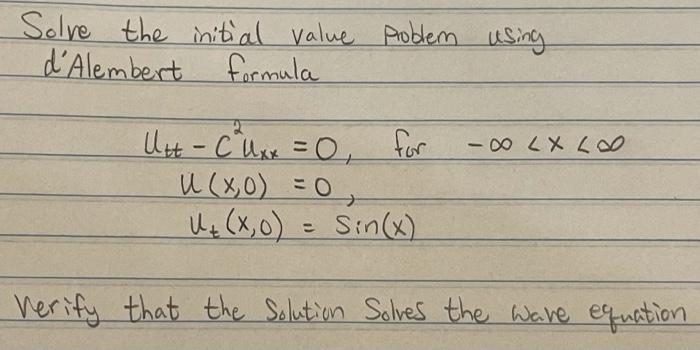 Solve the initial value problem using
d'Alembert formula
Utt - C²Uxx = 0, for -∞ < x < ∞
U(x,0) = 0,
Ut(x,0) = Sin(x)
Verify that the Solution Solves the wave equation